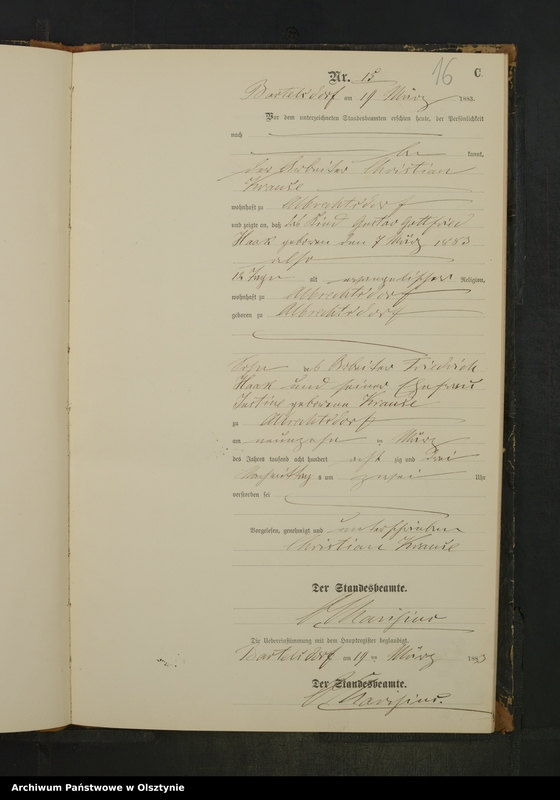 16 C
Nr. 15
Bartelsdorf am 19 März 1883.
Vor dem unterzeichneten Standesbeamten erschien heute, der Persönlichkeit
nach
kannt,
der Arbeiter Christian
Krause
wohnhaft zu Albrechtsdorf
und zeigte an, daß das Kind Gustav Gottfried
Haak geboren den 7 März 1883
also
12 Tage alt evangelischer Religion,
wohnhaft zu Albrechtsdorf
geboren zu Albrechtsdorf
Sohn des Arbeiter Friedrich
Haak und seiner Ehefrau
Justine geborene Krause
zu Albrechtsdorf
am neunzehn ten März
des Jahres tausend acht hundert acht zig und drei
Nachmittag s um zwei Uhr
verstorben sei
Vorgelesen, genehmigt und unterschrieben
Christian Krause
Der Standesbeamte.
Die Uebereinstimmung mit dem Hauptregister beglaubigt.
Bartelsdorf am 19 ten März 1883
Der Standesbeamte.
Archiwum Państwowe w Olsztynie